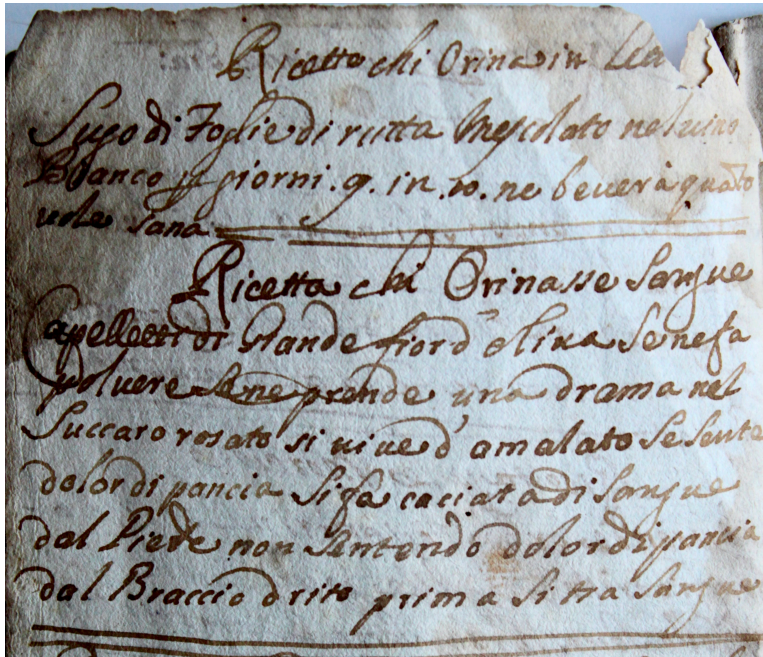 Ricetta chi Orina in
Sugo di Foglie di rutta Mescolato nel uino
Bianco p giorni .9. in .10. ne beuerà
uole sana
Ricetta chi Orinasse Sangue
Capelletti di Giande fior d'oliua Se ne fa
poluere Se ne prende una drama nel
Succaro rosato si uiue d'amalato Se Sente
dolor di pancia Si fa caciata di Sangue
dal Piede non Sentendo dolor di pancia
dal Braccio drito prima Si tra Sangue